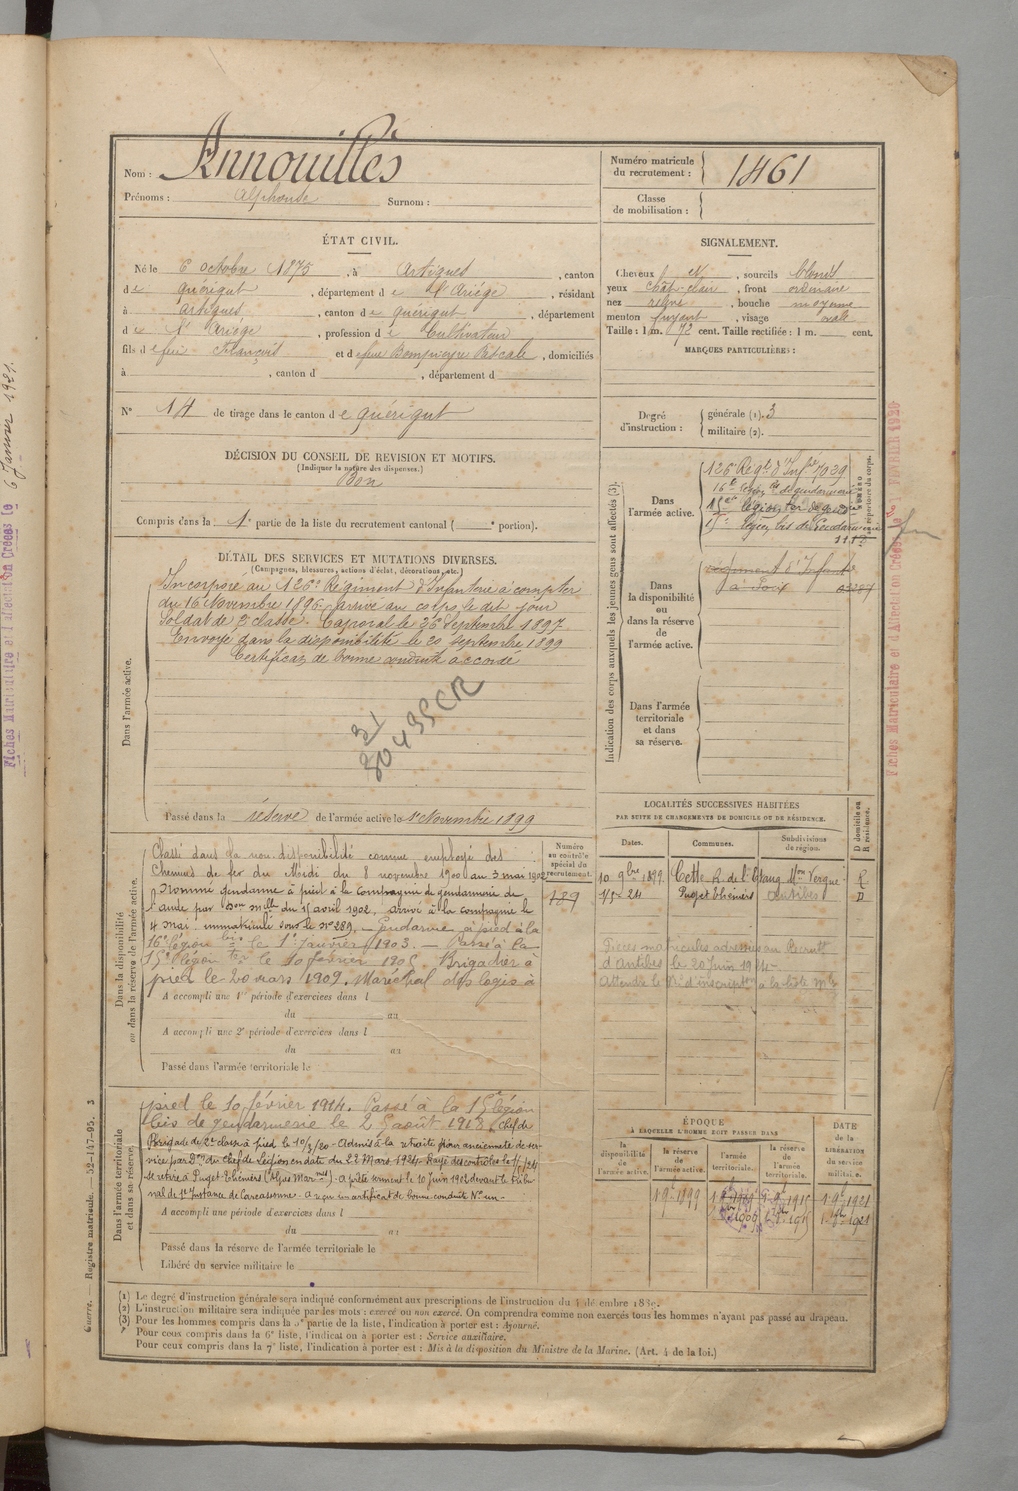 Nom : Annouilles
Prénoms : Alphonse Surnom :
Numéro matricule du recrutement : 1461
Classe de mobilisation :
ÉTAT CIVIL.
Né le 6 octobre 1875, à Artigues, canton
de quérigut, département de l'Ariége, résidant
à artigues, canton de quérigut, département
de l'Ariège, profession de Cultivateur
fils de feu François et de feue Pascale, domiciliés
à , canton d , département d
N° 14 de tirage dans le canton de quérigut
DÉCISION DU CONSEIL DE REVISION ET MOTIFS.
(Indiquer la nature des dispenses.)
Bon
Compris dans la 1e partie de la liste du recrutement cantonal ( e portion).
SIGNALEMENT.
Cheveux N, sourcils blonds
yeux chat-clair, front ordinaire
nez , bouche moyenne
menton fuyant, visage ovale
Taille : 1 m. 72 cent. Taille rectifiée : 1 m. cent.
MARQUES PARTICULIÈRES :
Degré d'instruction : générale (1). 3
militaire (2).
DÉTAIL DES SERVICES ET MUTATIONS DIVERSES.
(Campagnes, blessures, actions d'éclat, décorations, etc.)
Dans l'armée active.
Incorporé au 126e Régiment d'Infanterie à compter
du 16 Novembre 1896, arrivé au corps le dit jour
Soldat de 2e classe. Caporal le 26 Septembre 1897
Envoyé dans la disponibilité le 20 Septembre 1899
Certificat de bonne conduite accordé
Passé dans la réserve de l'armée active le 1er Novembre 1899
Indication des corps auxquels les jeunes gens sont affectés (3).
NUMÉRO au répertoire du corps.
Dans l'armée active.
126e Régt d'Infie 7029
16e Légion de gendarmerie
15e légion ter de gend
15e légion bis de Gendarmerie
Dans la disponibilité ou dans la réserve de l'armée active.
régiment d'Infanterie
à Foix
Dans l'armée territoriale et dans sa réserve.
LOCALITÉS SUCCESSIVES HABITÉES
PAR SUITE DE CHANGEMENTS DE DOMICILE OU DE RÉSIDENCE.
Dates. Communes. Subdivisions de région. D domicile ou R résidence.
10 9bre 1899 Cette R. de l'Etang R
Puget Théniers Antibes D
Pièces matricules adressées au Recrutt
d'Antibes le 20 Juin 1924
Attendre le N° d'inscription à la liste
Dans la disponibilité ou dans la réserve de l'armée active.
Numéro au contrôle spécial du recrutement.
189
Classé dans la non disponibilité comme employé des
Chemins de fer du Midi du 8 novembre 1900 au 3 mai 1902
Nommé gendarme à pied à la Compagnie de gendarmerie de
l'aude par Don melle du 15 avril 1902, arrivé à la compagnie le
4 mai immatriculé sous le No 289. — Gendarme à pied à la
16e légion bis le 1er Janvier 1903. — Passé à la
15e légion ter le 10 février 1905 Brigadier à
pied le 20 mars 1909. Maréchal des logis à
A accompli une 1re période d'exercices dans l
du au
A accompli une 2e période d'exercices dans l
du au
Passé dans l'armée territoriale le
Dans l'armée territoriale et dans sa réserve.
pied le 10 février 1914. Passé à la 15e légion
bis de gendarmerie le 2 août 1918 Chef de
Brigade de 2e classe à pied le 10/3/20 - Admis à la retraite pour ancienneté de ser-
vice par Don du Chef de Légion en date du 22 Mars 1924. Rayé des contrôles le
se retire à Puget-Théniers (Alpes Marmes) - a prêté serment le 10 Juin 1902 devant le tribu-
nal de 1re Instance de Carcassonne - a reçu un certificat de bonne conduite No un -
A accompli une période d'exercices dans l
du au
Passé dans la réserve de l'armée territoriale le
Libéré du service militaire le
ÉPOQUE
À LAQUELLE L'HOMME DOIT PASSER DANS
la disponibilité de l'armée active. la réserve de l'armée active. l'armée territoriale. la réserve de l'armée territoriale. DATE de la LIBÉRATION du service militaire.
(1) Le degré d'instruction générale sera indiqué conformément aux prescriptions de l'instruction du 4 décembre 1889.
(2) L'instruction militaire sera indiquée par les mots : exercé ou non exercé. On comprendra comme non exercés tous les hommes n'ayant pas passé au drapeau.
(3) Pour les hommes compris dans la 5e partie de la liste, l'indication à porter est : Ajourné.
Pour ceux compris dans la 6e liste, l'indication à porter est : Service auxiliaire.
Pour ceux compris dans la 7e liste, l'indication à porter est : Mis à la disposition du Ministre de la Marine. (Art. 4 de la loi.)
Guerre. — Registre matricule. — 52-147-95. 3
6 Janvier 1921